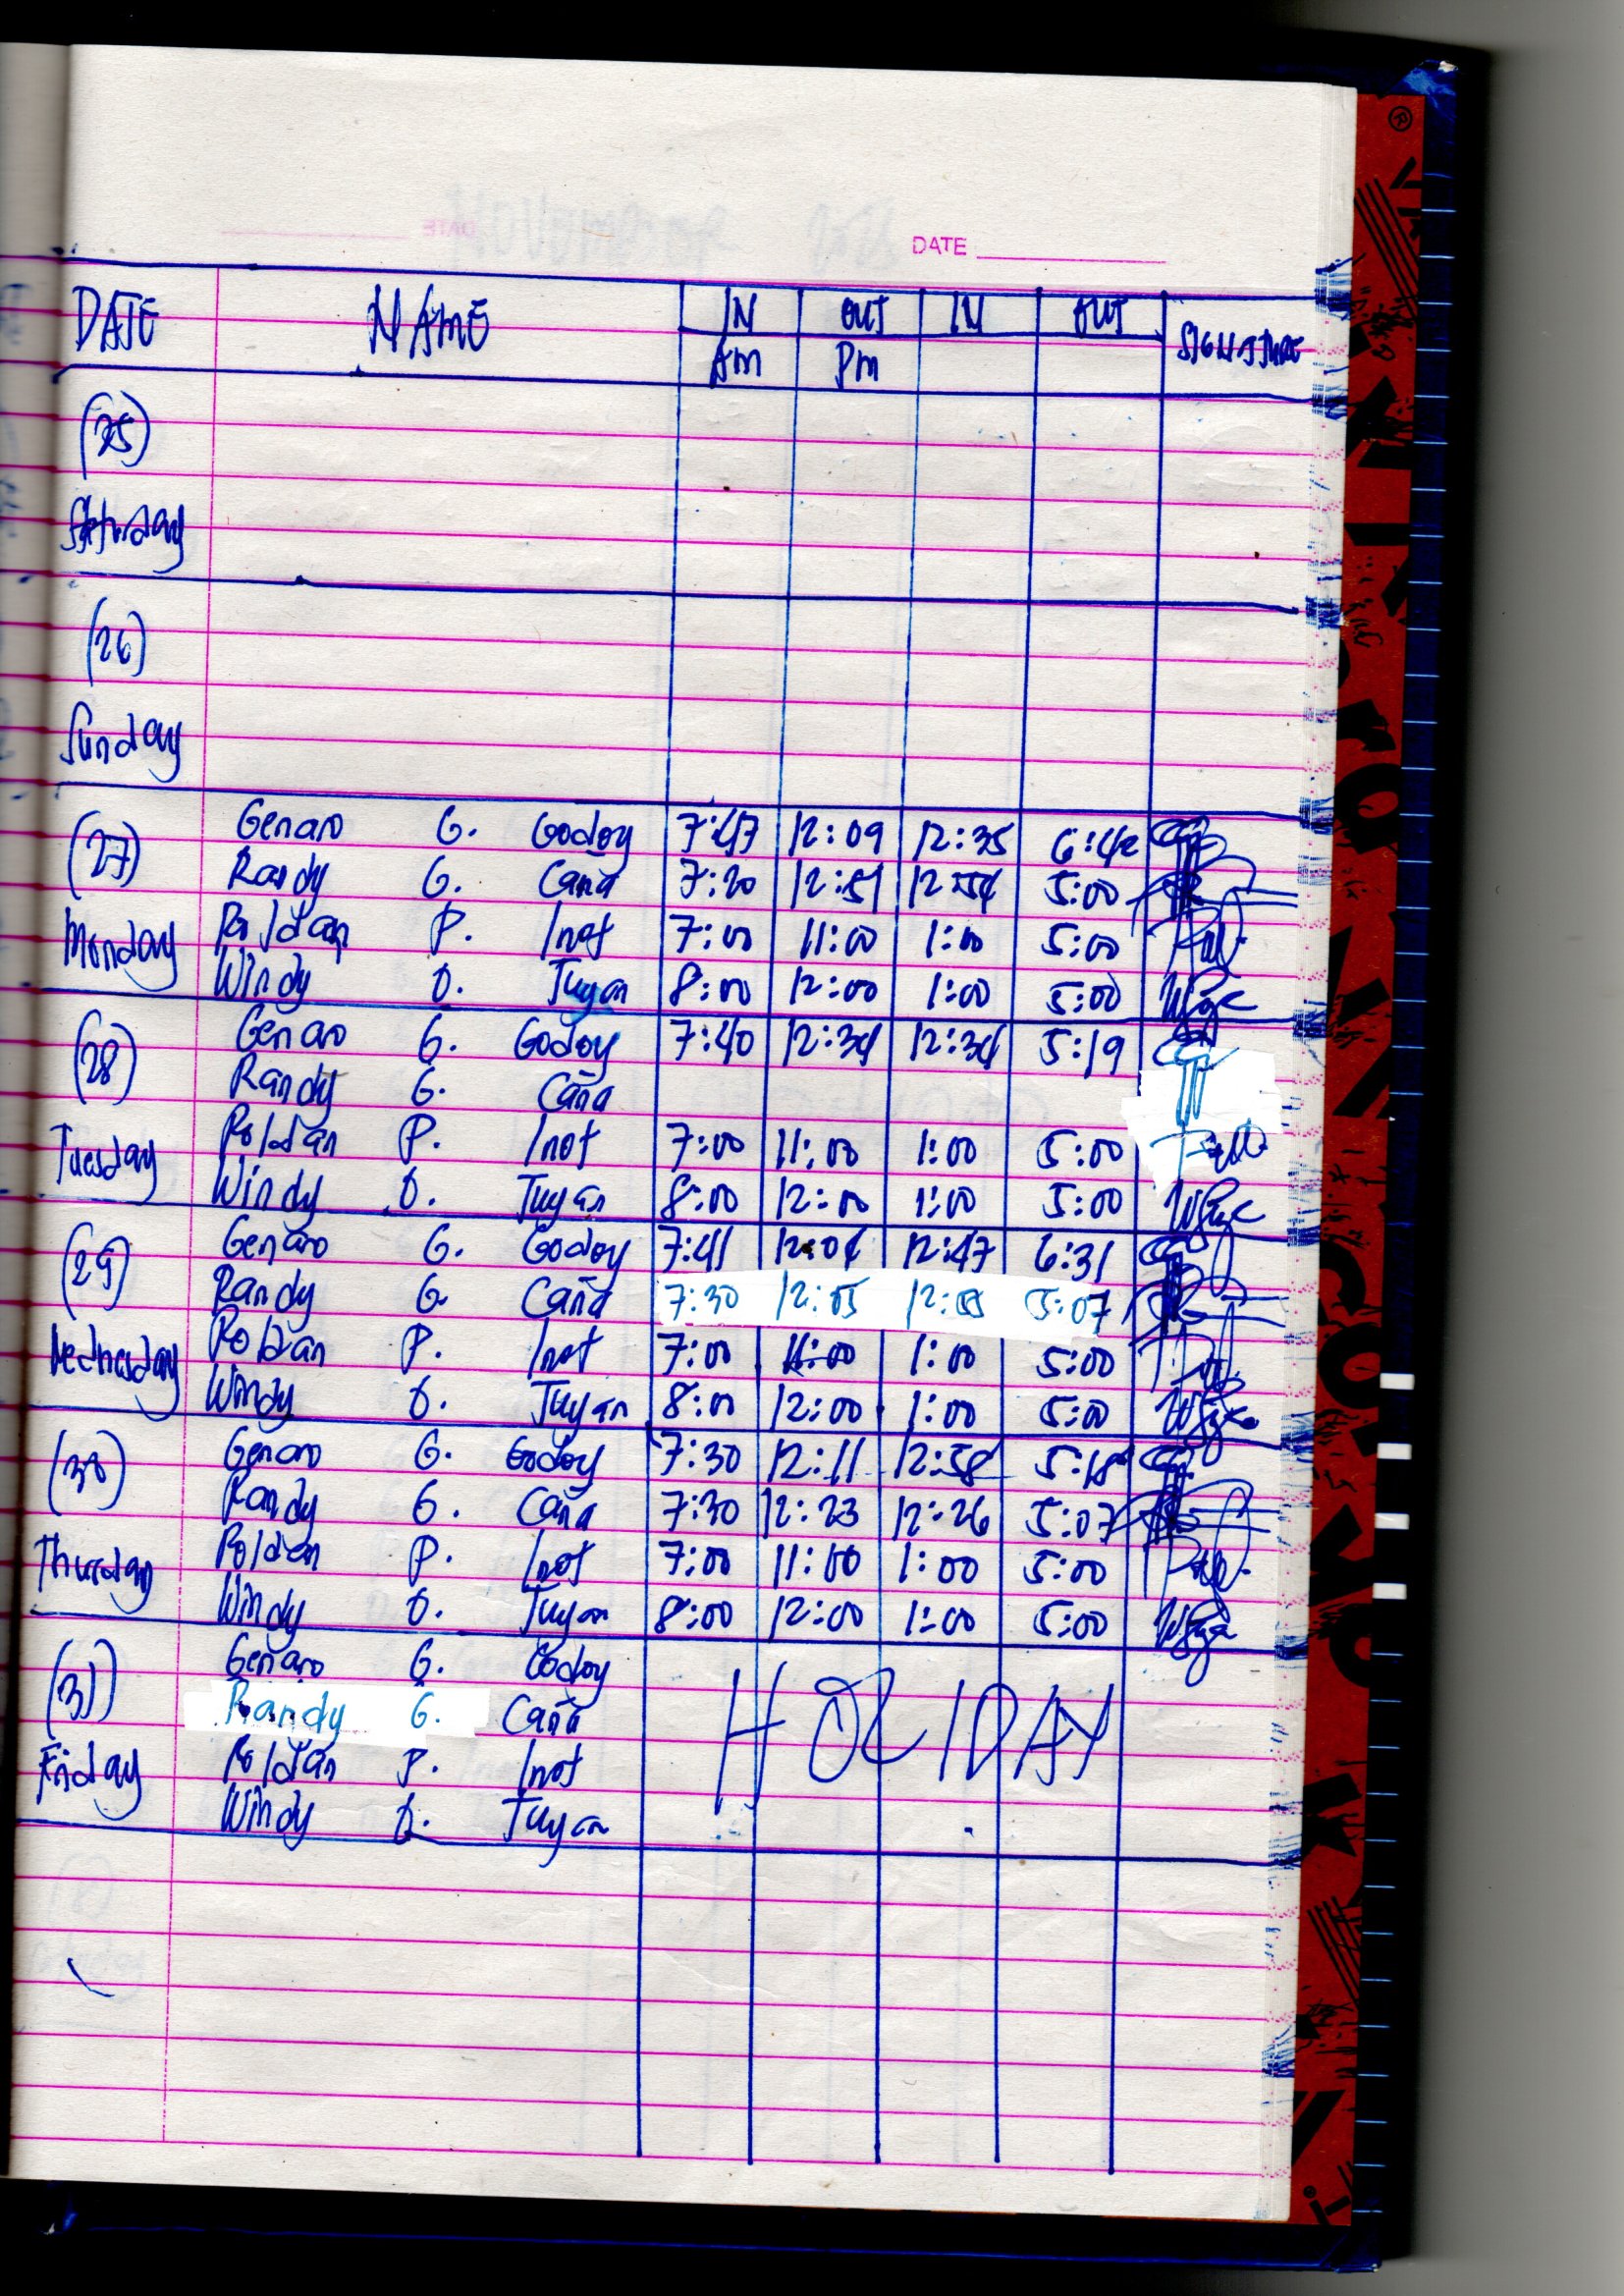 DATE
DATE NAME IN OUT IN OUT SIGNATURE
Am Pm
(25)
Saturday
(26)
Sunday
(27) Genaro G. Godoy 7:47 12:09 12:35 6:42
Randy G. Caña 7:20 12:51 12:54 5:00
Monday Roldan P. Inot 7:00 11:00 1:00 5:00
Windy O. Tuyan 8:00 12:00 1:00 5:00
(28) Genaro G. Godoy 7:40 12:34 12:34 5:19
Randy G. Caña
Tuesday Roldan P. Inot 7:00 11:00 1:00 5:00
Windy O. Tuyan 8:00 12:00 1:00 5:00
(29) Genaro G. Godoy 7:41 12:04 12:47 6:31
Randy G. Caña 7:30 12:05 5:07
Wednesday Roldan P. Inot 7:00 11:00 1:00 5:00
Windy O. Tuyan 8:00 12:00 1:00 5:00
(30) Genaro G. Godoy 7:30 12:11 12:58 5:18
Randy G. Caña 7:30 12:23 12:26 5:07
Thursday Roldan P. Inot 7:00 11:00 1:00 5:00
Windy O. Tuyan 8:00 12:00 1:00 5:00
(31) Genaro G. Godoy HOLIDAY
Randy G. Caña
Friday Roldan P. Inot
Windy O. Tuyan